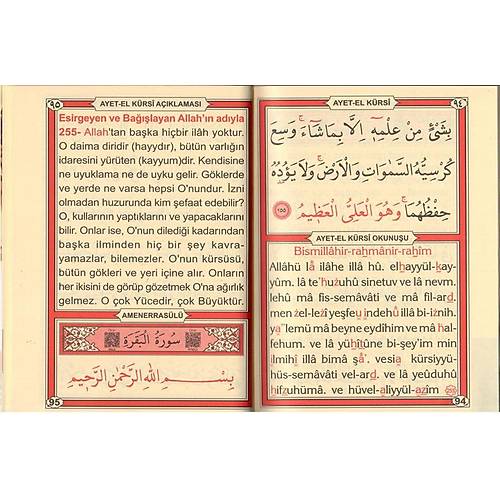 ٩٤
AYET-EL KÜRSİ
بِشَيْءٍ مِنْ عِلْمِهٖٓ اِلَّا بِمَا شَٓاءَۚ وَسِعَ
كُرْسِيُّهُ السَّمٰوَاتِ وَالْاَرْضَۚ وَلَا يَؤُ۫دُهُ
حِفْظُهُمَاۚ وَهُوَ الْعَلِيُّ الْعَظٖيمُ ﴿٢٥٥﴾
AYET-EL KÜRSİ OKUNUŞU
Bismillâhir-rahmânir-rahîm
Allâhü lâ ilâhe illâ hû. elhayyül-kay-
yûm. lâ te'huzuhû sinetuv ve lâ nevm.
lehû mâ fis-semâvâti ve mâ fil-ard.
men zel-lezî yeşfeu ındehû illâ bi-iznih.
ya'lemü mâ beyne eydîhim ve mâ hal-
fehum. ve lâ yühîtûne bi-şey'im min
ılmihî illâ bimâ şâ'. vesia kürsiyyü-
hüs-semâvâti vel-ard. ve lâ yeûduhû
hıfzuhümâ. ve hüvel-aliyyül-azîm 255
94
٩٥
AYET-EL KÜRSİ AÇIKLAMASI
Esirgeyen ve Bağışlayan Allah'ın adıyla
255- Allah'tan başka hiçbir ilâh yoktur.
O daima diridir (hayydır), bütün varlığın
idaresini yürüten (kayyum)dir. Kendisine
ne uyuklama ne de uyku gelir. Göklerde
ve yerde ne varsa hepsi O'nundur. İzni
olmadan huzurunda kim şefaat edebilir?
O, kullarının yaptıklarını ve yapacaklarını
bilir. Onlar ise, O'nun dilediği kadarından
başka ilminden hiç bir şey kavra-
yamazlar, bilemezler. O'nun kürsüsü,
bütün gökleri ve yeri içine alır. Onların
her ikisini de görüp gözetmek O'na ağırlık
gelmez. O çok Yücedir, Çok Büyüktür.
AMENERRASULÜ
سُورَةُ الْبَقَرَةِ
بِسْمِ اللّٰهِ الرَّحْمٰنِ الرَّحٖيمِ
95